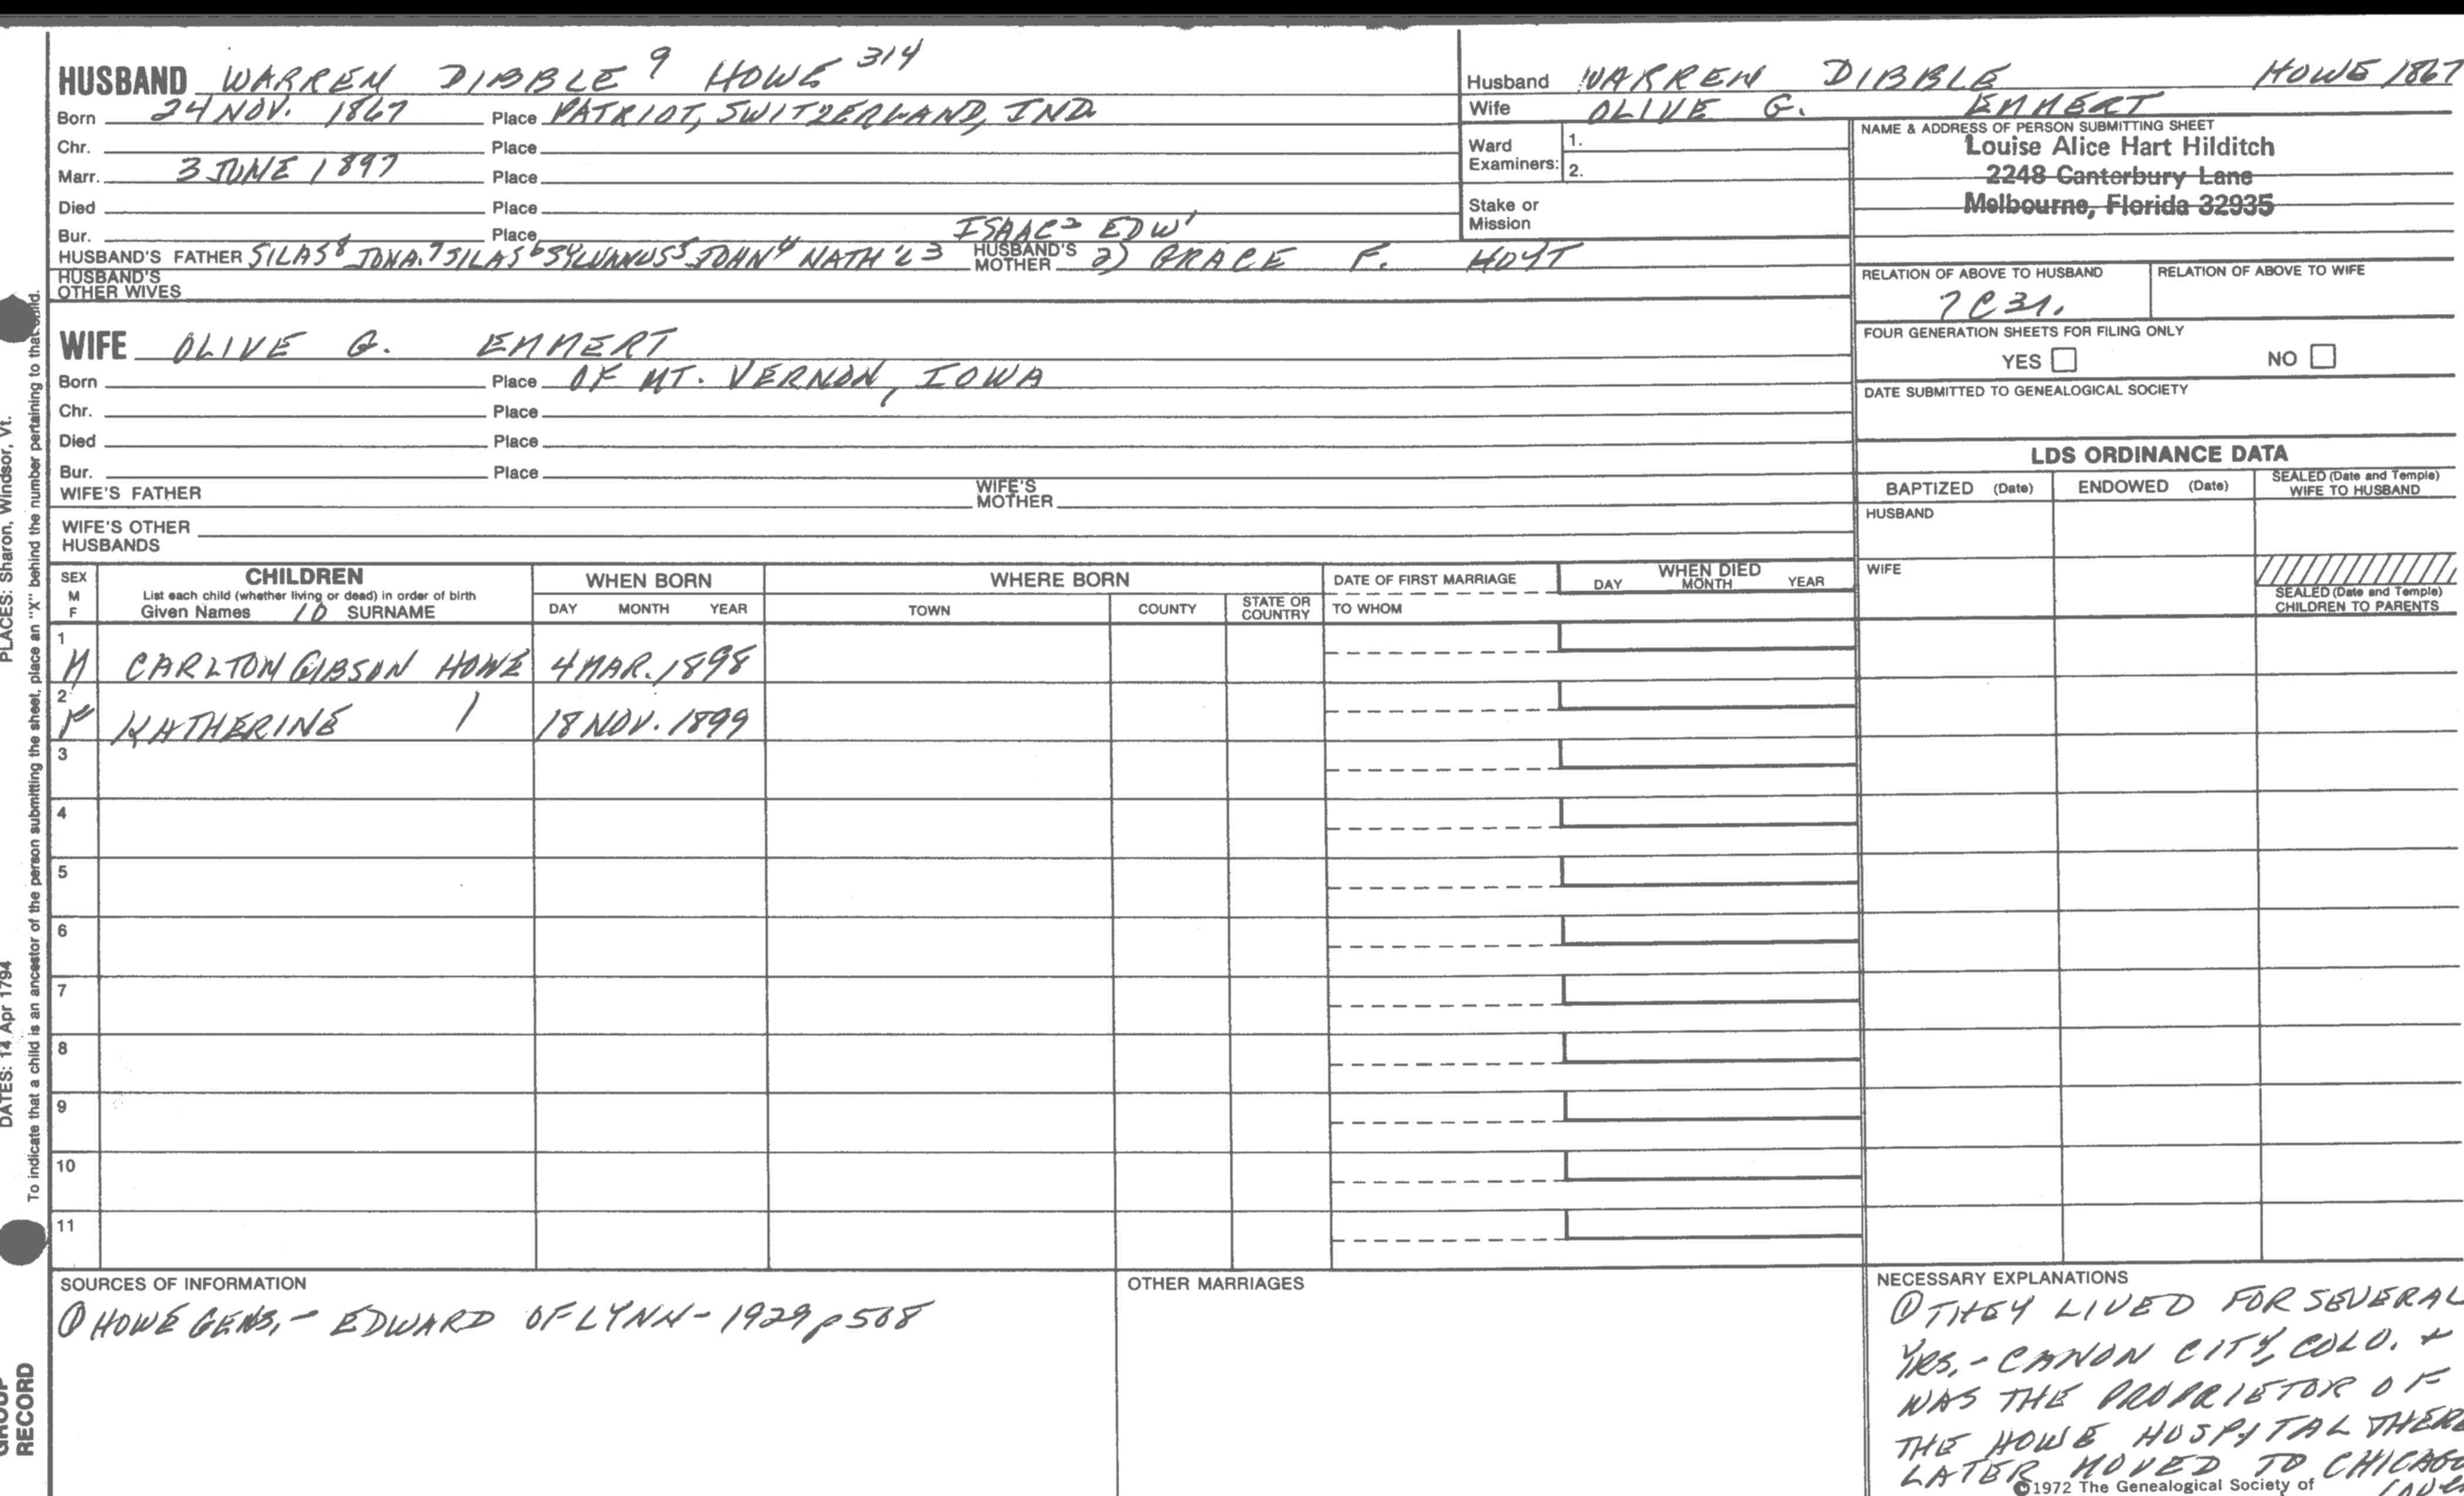 HUSBAND WARREN DIBBLE 9 HOWE 314
Born 24 NOV. 1867 Place PATRIOT, SWITZERLAND, IND.
Chr. Place
Marr. 3 JUNE 1897 Place
Died Place
Bur. Place
ISAAC 2 EDW 1
HUSBAND'S FATHER SILAS 8 JONA. 7 SILAS 6 SYLVANUS 5 JOHN 4 NATH'L 3 HUSBAND'S MOTHER 2) GRACE F. HOYT
HUSBAND'S OTHER WIVES
WIFE OLIVE G. EMMERT
Born Place OF MT. VERNON, IOWA
Chr. Place
Died Place
Bur. Place
WIFE'S FATHER WIFE'S MOTHER
WIFE'S OTHER HUSBANDS
Husband WARREN DIBBLE HOWE 1867
Wife OLIVE G. EMMERT
Ward Examiners: 1.
2.
Stake or Mission
NAME & ADDRESS OF PERSON SUBMITTING SHEET
Louise Alice Hart Hilditch
2248 Canterbury Lane
Melbourne, Florida 32935
RELATION OF ABOVE TO HUSBAND RELATION OF ABOVE TO WIFE
FOUR GENERATION SHEETS FOR FILING ONLY
YES NO
DATE SUBMITTED TO GENEALOGICAL SOCIETY
LDS ORDINANCE DATA
BAPTIZED (Date) ENDOWED (Date) SEALED (Date and Temple) WIFE TO HUSBAND
HUSBAND
WIFE
SEALED (Date and Temple) CHILDREN TO PARENTS
SEX M F
CHILDREN
List each child (whether living or dead) in order of birth
Given Names 10 SURNAME
WHEN BORN
DAY MONTH YEAR
WHERE BORN
TOWN COUNTY STATE OR COUNTRY
DATE OF FIRST MARRIAGE
TO WHOM
WHEN DIED
DAY MONTH YEAR
1 M CARLTON GIBSON HOWE 4 MAR. 1898
2 F KATHERINE 18 NOV. 1899
3
4
5
6
7
8
9
10
11
SOURCES OF INFORMATION
① HOWE GENS. - EDWARD OF LYNN - 1929 p508
OTHER MARRIAGES
NECESSARY EXPLANATIONS
① THEY LIVED FOR SEVERAL
YRS. - CANON CITY, COLO. +
WAS THE PROPRIETOR OF
THE HOWE HOSPITAL THERE
LATER MOVED TO CHICAGO
©1972 The Genealogical Society of
PLACES: Sharon, Windsor, Vt.
DATES: 14 Apr 1794
To indicate that a child is an ancestor of the person submitting the sheet, place an "X" behind the number pertaining to that child.
GROUP
RECORD